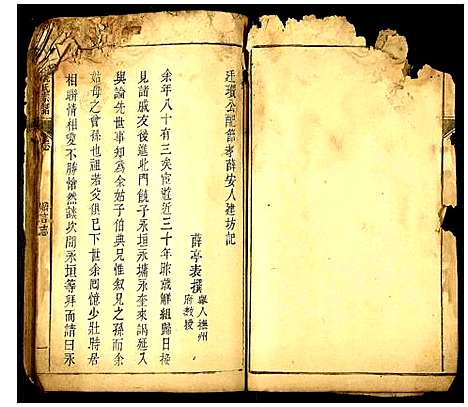 廷瓚公配節孝薛安人建坊記
薛亭表撰 舉人撫州府教授
余年八十有三矣宦遊近三十年昨歲解組歸日接
見諸戚友後進北門饒子永垣永墉永奎來謁延入
與論先世事知為余姑子伯典兄惟叙兄之孫而余
姑母之曾孫也祖若父俱已下世余囘憶少壯時居
相聯情相愛不勝愴然談次間永垣等拜而請曰永
氏宗譜
藝言志
一